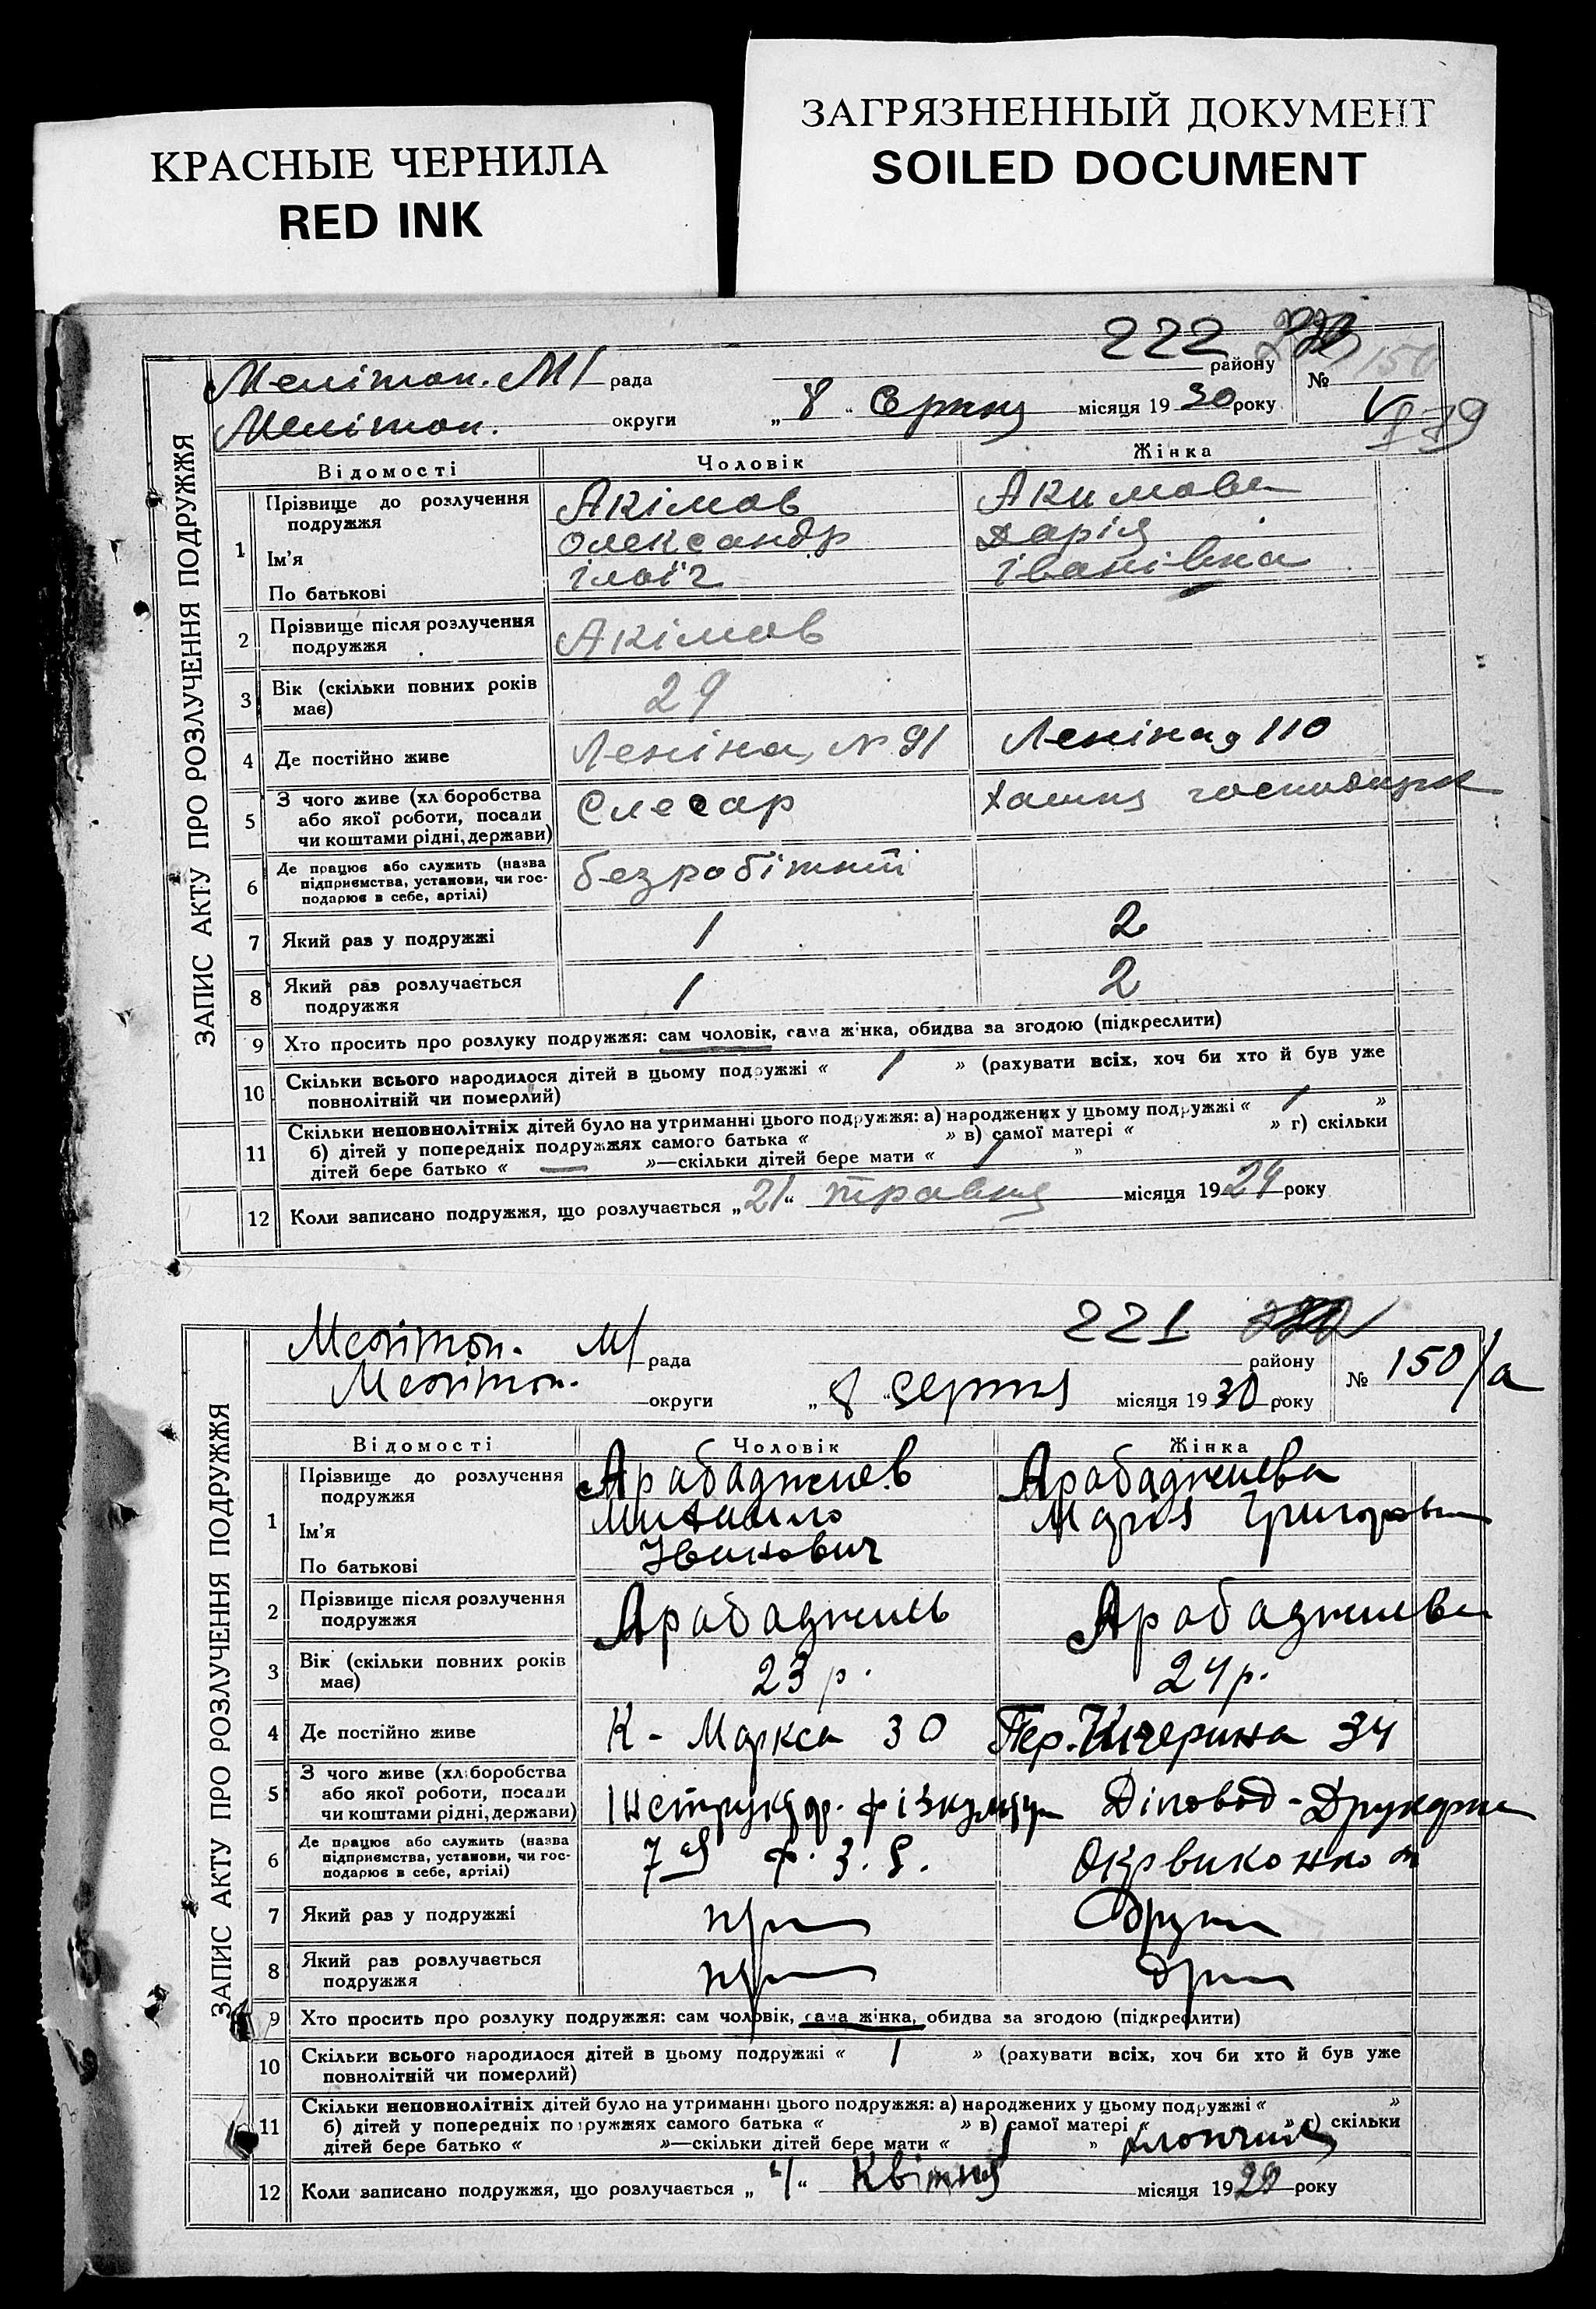 КРАСНЫЕ ЧЕРНИЛА
RED INK
ЗАГРЯЗНЕННЫЙ ДОКУМЕНТ
SOILED DOCUMENT
ЗАПИС АКТУ ПРО РОЗЛУЧЕННЯ ПОДРУЖЖЯ
222
Мелітоп. М/ рада району № 150
Мелітоп. округи „ 8 " Серпня місяця 1930 року
Відомості Чоловік Жінка
1 Прізвище до розлучення подружжя Акімов Акимова
Ім'я Олександр Дарія
По батькові ілліч іванівна
2 Прізвище після розлучення подружжя Акімов
3 Вік (скільки повних років має) 29
4 Де постійно живе Леніна, № 91 Леніна, 110
5 З чого живе (хліборобства або якої роботи, посади чи коштами рідні, держави) Слесар
6 Де працює або служить (назва підприємства, установи, чи господарює в себе, артілі) безробітний
7 Який раз у подружжі 1 2
8 Який раз розлучається подружжя 1 2
9 Хто просить про розлуку подружжя: сам чоловік, сама жінка, обидва за згодою (підкреслити)
10 Скільки всього народилося дітей в цьому подружжі « 1 » (рахувати всіх, хоч би хто й був уже
повнолітній чи померлий)
11 Скільки неповнолітніх дітей було на утриманні цього подружжя: а) народжених у цьому подружжі « 1 »
б) дітей у попередніх подружжях самого батька « » в) самої матері « » г) скільки
дітей бере батько « — »—скільки дітей бере мати « 1 »
12 Коли записано подружжя, що розлучається „21" травня місяця 1924 року
ЗАПИС АКТУ ПРО РОЗЛУЧЕННЯ ПОДРУЖЖЯ
221
Мелітоп. М/ рада району № 150/а
Мелітоп. округи „ 8 " серпня місяця 1930 року
Відомості Чоловік Жінка
1 Прізвище до розлучення подружжя Арабаджиев Арабаджиева
Ім'я Михайло Марія Григоровна
По батькові Иванович
2 Прізвище після розлучення подружжя Арабаджиев Арабаджиева
3 Вік (скільки повних років має) 23 р. 24 р.
4 Де постійно живе К - Маркса 30 Пер. 34
5 З чого живе (хліборобства або якої роботи, посади чи коштами рідні, держави) Інструктор фізкультури Діловод-Друкарка
6 Де працює або служить (назва підприємства, установи, чи господарює в себе, артілі) Окрвиконком
7 Який раз у подружжі
8 Який раз розлучається подружжя
9 Хто просить про розлуку подружжя: сам чоловік, сама жінка, обидва за згодою (підкреслити)
10 Скільки всього народилося дітей в цьому подружжі « 1 » (рахувати всіх, хоч би хто й був уже
повнолітній чи померлий)
11 Скільки неповнолітніх дітей було на утриманні цього подружжя: а) народжених у цьому подружжі « »
б) дітей у попередніх подружжях самого батька « » в) самої матері « » г) скільки
дітей бере батько « »—скільки дітей бере мати « 1 »
12 Коли записано подружжя, що розлучається „ " Квітня місяця 19 року